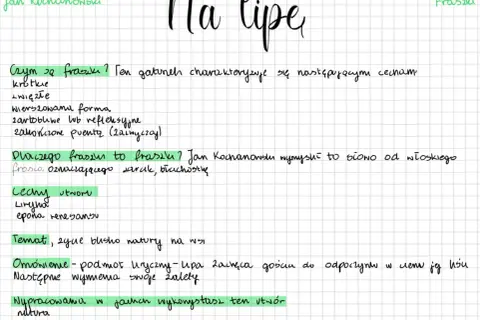 Jan Kochanowski
Fraszki
Na lipę
Czym są fraszki? Ten gatunek charakteryzuje się następującymi cechami
krótkie
zwięzłe
wierszowana forma
żartobliwe lub refleksyjne
zakończone puentą (zazwyczaj)
Dlaczego fraszki to fraszki? Jan Kochanowski wymyślił to słowo od włoskiego
frasca oznaczającego żarcik, błachostkę
Cechy utworu
Liryka
epoka renesansu
Temat, życie blisko natury na wsi
Omówienie - podmiot liryczny - lipa zachęca gościa do odpoczynku w cieniu jej liści
Następnie wymienia swoje zalety
Wypracowania w jakich wykorzystasz ten utwór
natura